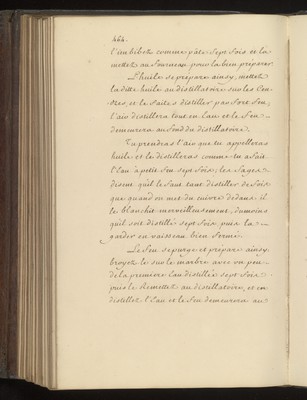 464.
l'imbibez comme pâte sept fois et la
mettez au fourneau pour la bien préparer
L'huile se prépare ainsy, mettez
la ditte huile au distillatoire sur les Cen-
dres, et le faites distiller par fort feu,
l'air distillera tout en Eau et le feu
demeurera au fond du distillatoire.
Tu prendras l'air que tu appelleras
huile et le distilleras comme tu as fait
l'Eau à petit feu sept fois; les Sages
disent qu'il le faut tant distiller de fois
que quand on met du cuivre dedans il
le blanchit merveilleusement, du moins
qu'il soit distillé sept fois puis la
garder en vaisseau bien fermé.
Le feu se purge et prépare ainsy.
broyez le sur le marbre avec un peu
de la premiere Eau distillée sept fois
puis le Remettez au distillatoire, et en
distillez l'Eau et le feu demeurera au